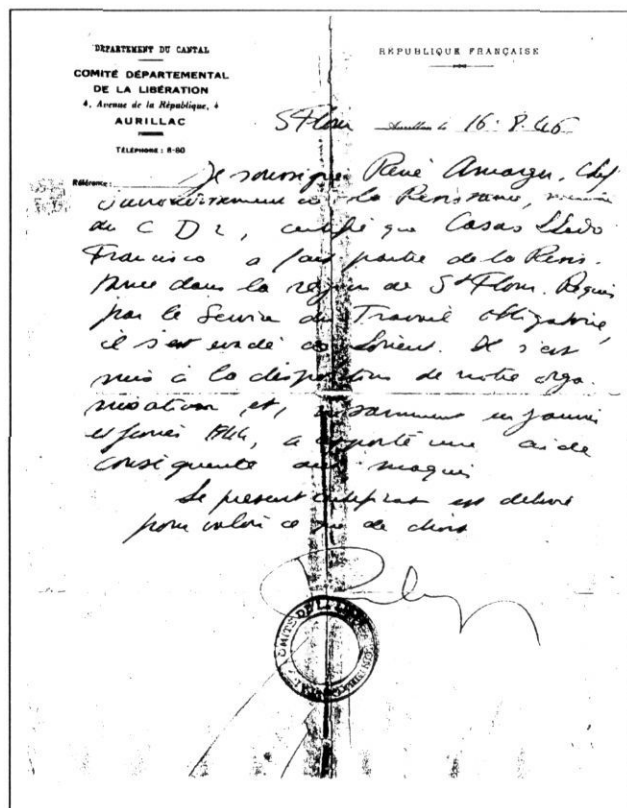 DÉPARTEMENT DU CANTAL
COMITÉ DÉPARTEMENTAL
DE LA LIBÉRATION
4, Avenue de la République, 4
AURILLAC
TÉLÉPHONE : 8-80
RÉPUBLIQUE FRANÇAISE
St Flour Aurillac le 16.8.46
Référence :
Je soussigné René Amarger, Chef
d'arrondissement de la Résistance, membre
du C D L, certifie que Casas Llado
Francisco a fait partie de la Résis.
tance dans la région de St Flour. Requis
par le Service du Travail obligatoire,
il s'est evadé de Lorient. Il s'est
mis à la disposition de notre orga.
nisation et, notamment en janvier
et février 1944, a apporté une aide
conséquente aux maquis
Le present certificat est delivré
pour valoir ce que de droit
COMITÉ DE LA LIBÉRATION
CANTAL